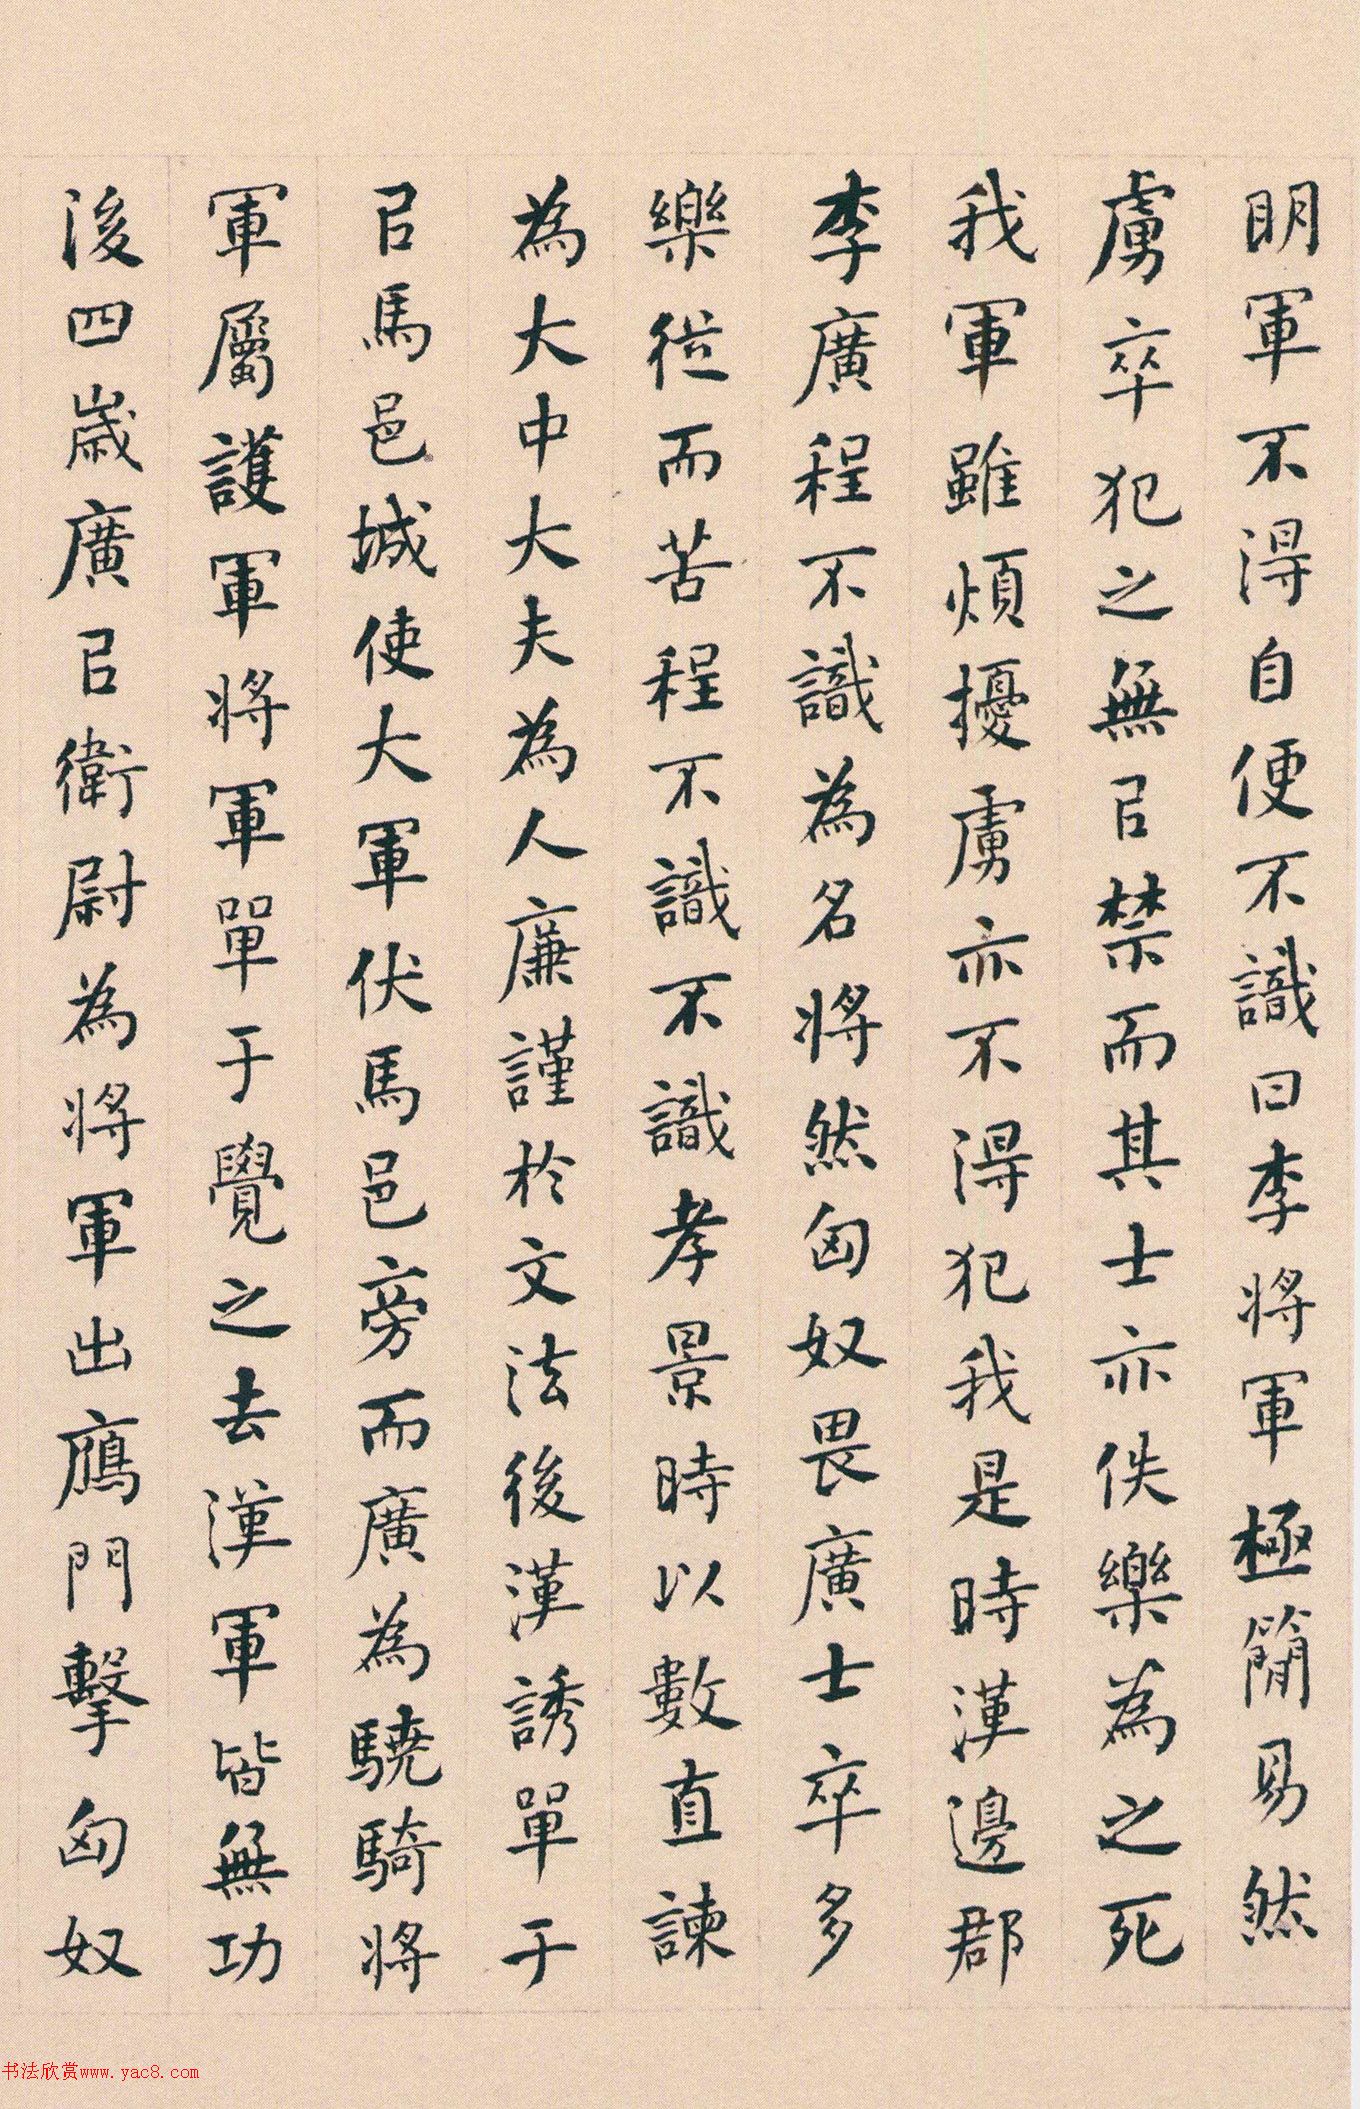 明軍不得自便不識曰李將軍極簡易然
虜卒犯之無㠯禁而其士亦佚樂為之死
我軍雖煩擾虜亦不得犯我是時漢邊郡
李廣程不識為名將然匈奴畏廣士卒多
樂從而苦程不識不識孝景時以數直諫
為大中大夫為人廉謹於文法後漢誘單于
㠯馬邑城使大軍伏馬邑旁而廣為驍騎將
軍屬護軍將軍單于覺之去漢軍皆無功
後四歲廣㠯衛尉為將軍出鴈門擊匈奴
书法欣赏www.yac8.com